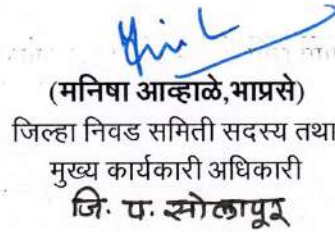 (मनिषा आव्हाळे,भाप्रसे)
जिल्हा निवड समिती सदस्य तथा
मुख्य कार्यकारी अधिकारी
जि. प. सोलापूर